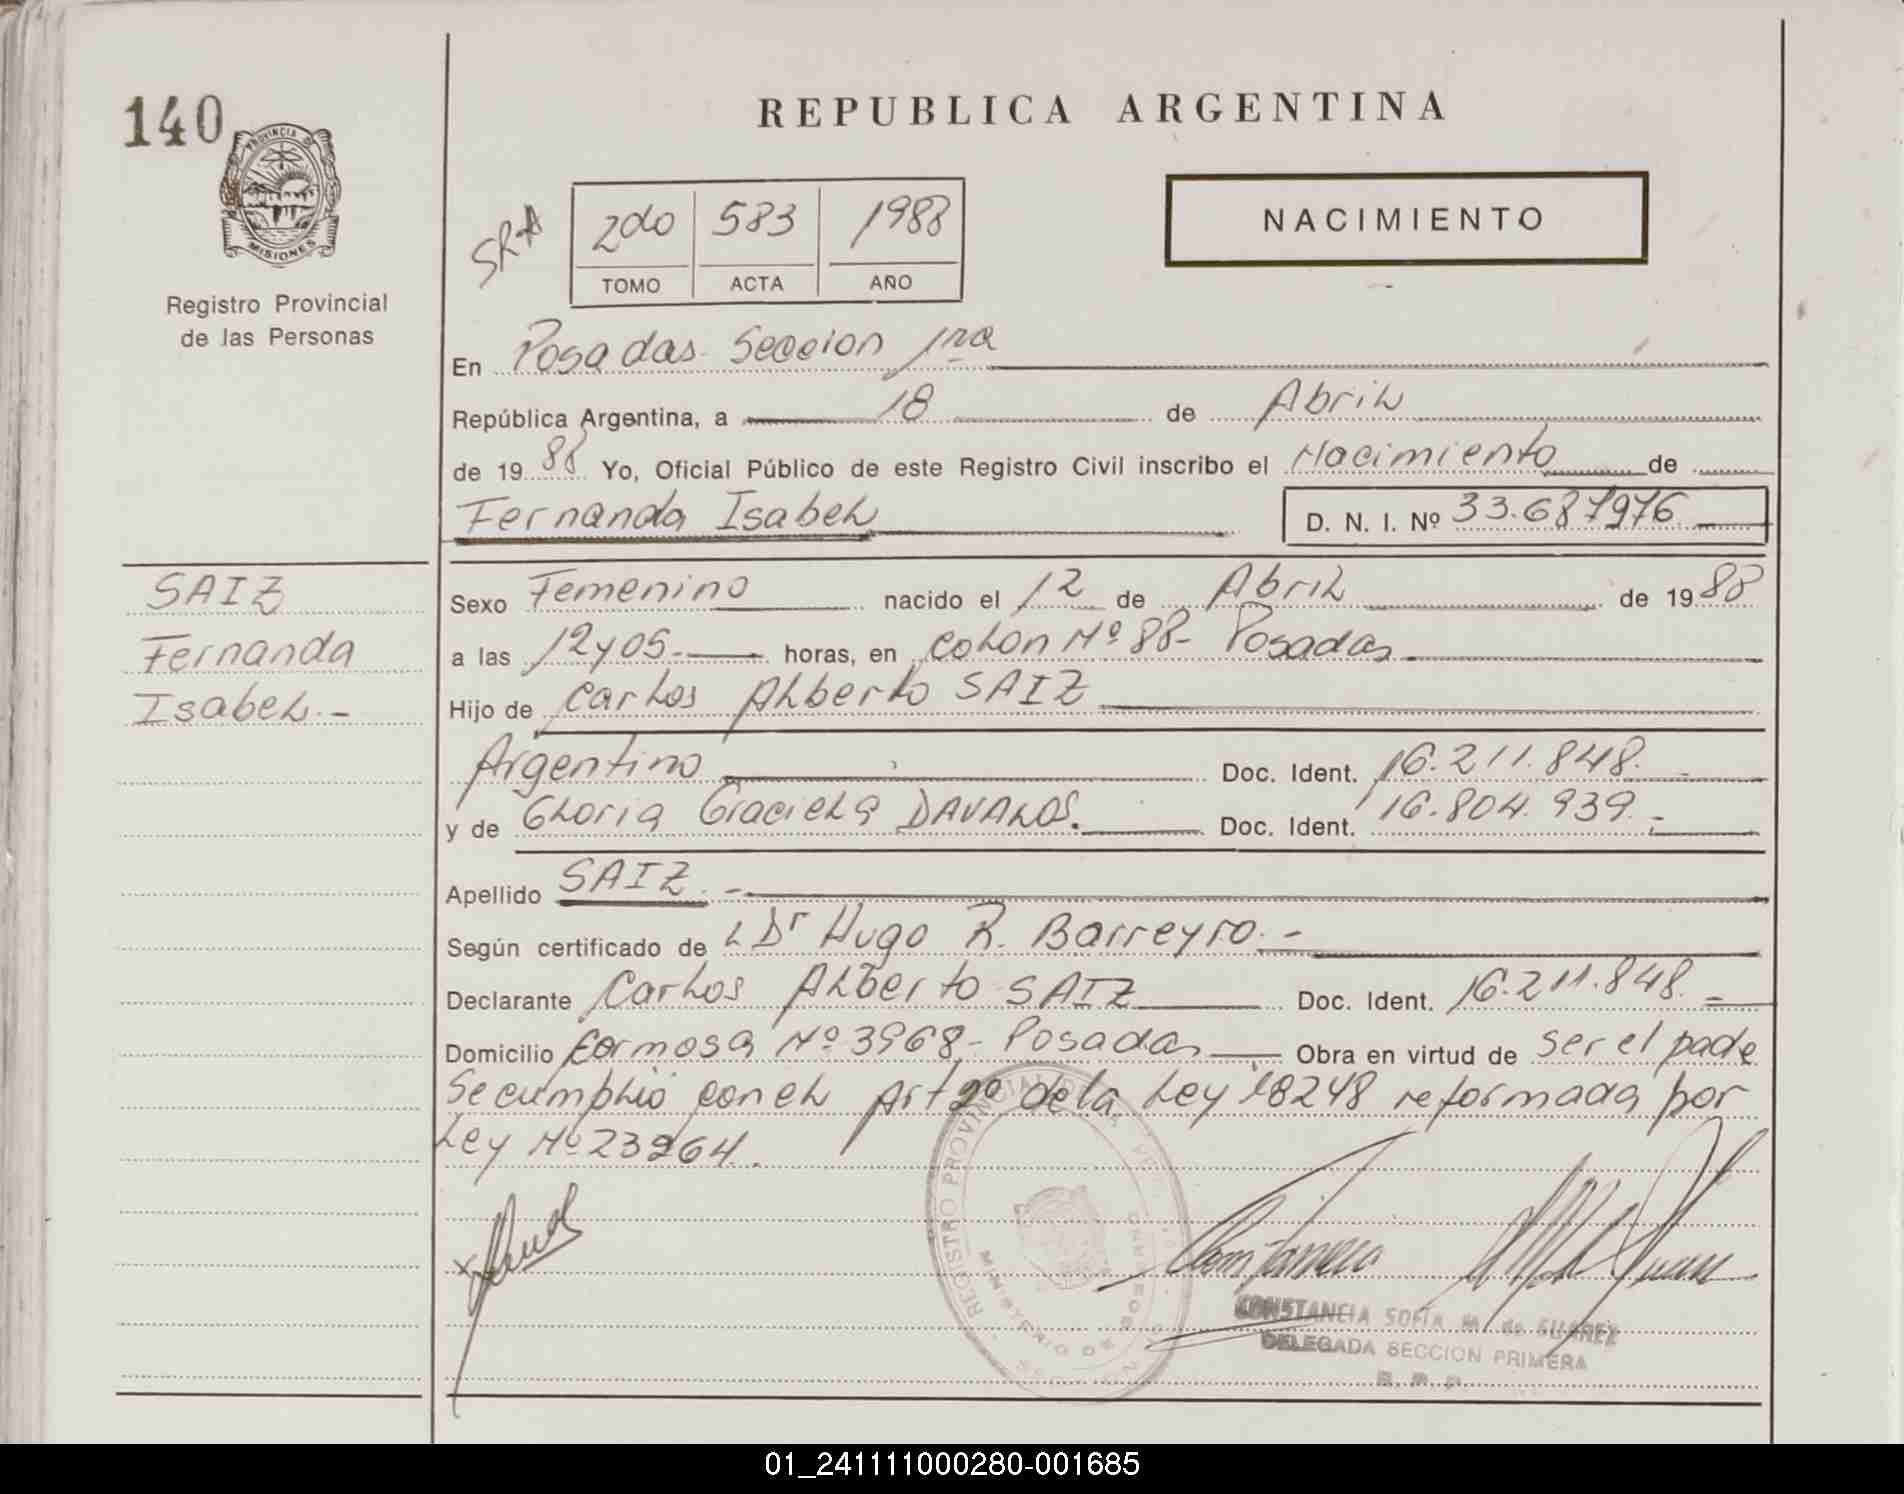 140
PROVINCIA DE
MISIONES
Registro Provincial
de las Personas
REPUBLICA ARGENTINA
NACIMIENTO
2do 583 1988
TOMO ACTA AÑO
En Posadas Seccion 1ra
República Argentina, a 18 de Abril
de 1988 Yo, Oficial Público de este Registro Civil inscribo el Nacimiento de
Fernanda Isabel D. N. I. Nº 33.687976
SAIZ
Fernanda
Isabel.-
Sexo Femenino nacido el 12 de Abril de 1988
a las 12y05.- horas, en Colon Nº 88- Posadas
Hijo de Carlos Alberto SAIZ
Argentino Doc. Ident. 16.211.848.-
y de Gloria Graciela DAVALOS. Doc. Ident. 16.804.939.-
Apellido SAIZ.-
Según certificado de L Dr Hugo R. Barreyro.-
Declarante Carlos Alberto SAIZ Doc. Ident. 16.211.848.-
Domicilio Formosa Nº 3968- Posadas Obra en virtud de ser el pade
Se cumplió con el Art 2º de la Ley 18248 reformada por
Ley Nº 23264.
REGISTRO PROVINCIAL DE LAS
MINISTERIO DE
CONSTANCIA SOFIA M. de SUAREZ
DELEGADA SECCION PRIMERA
R. P. P.
01_241111000280-001685